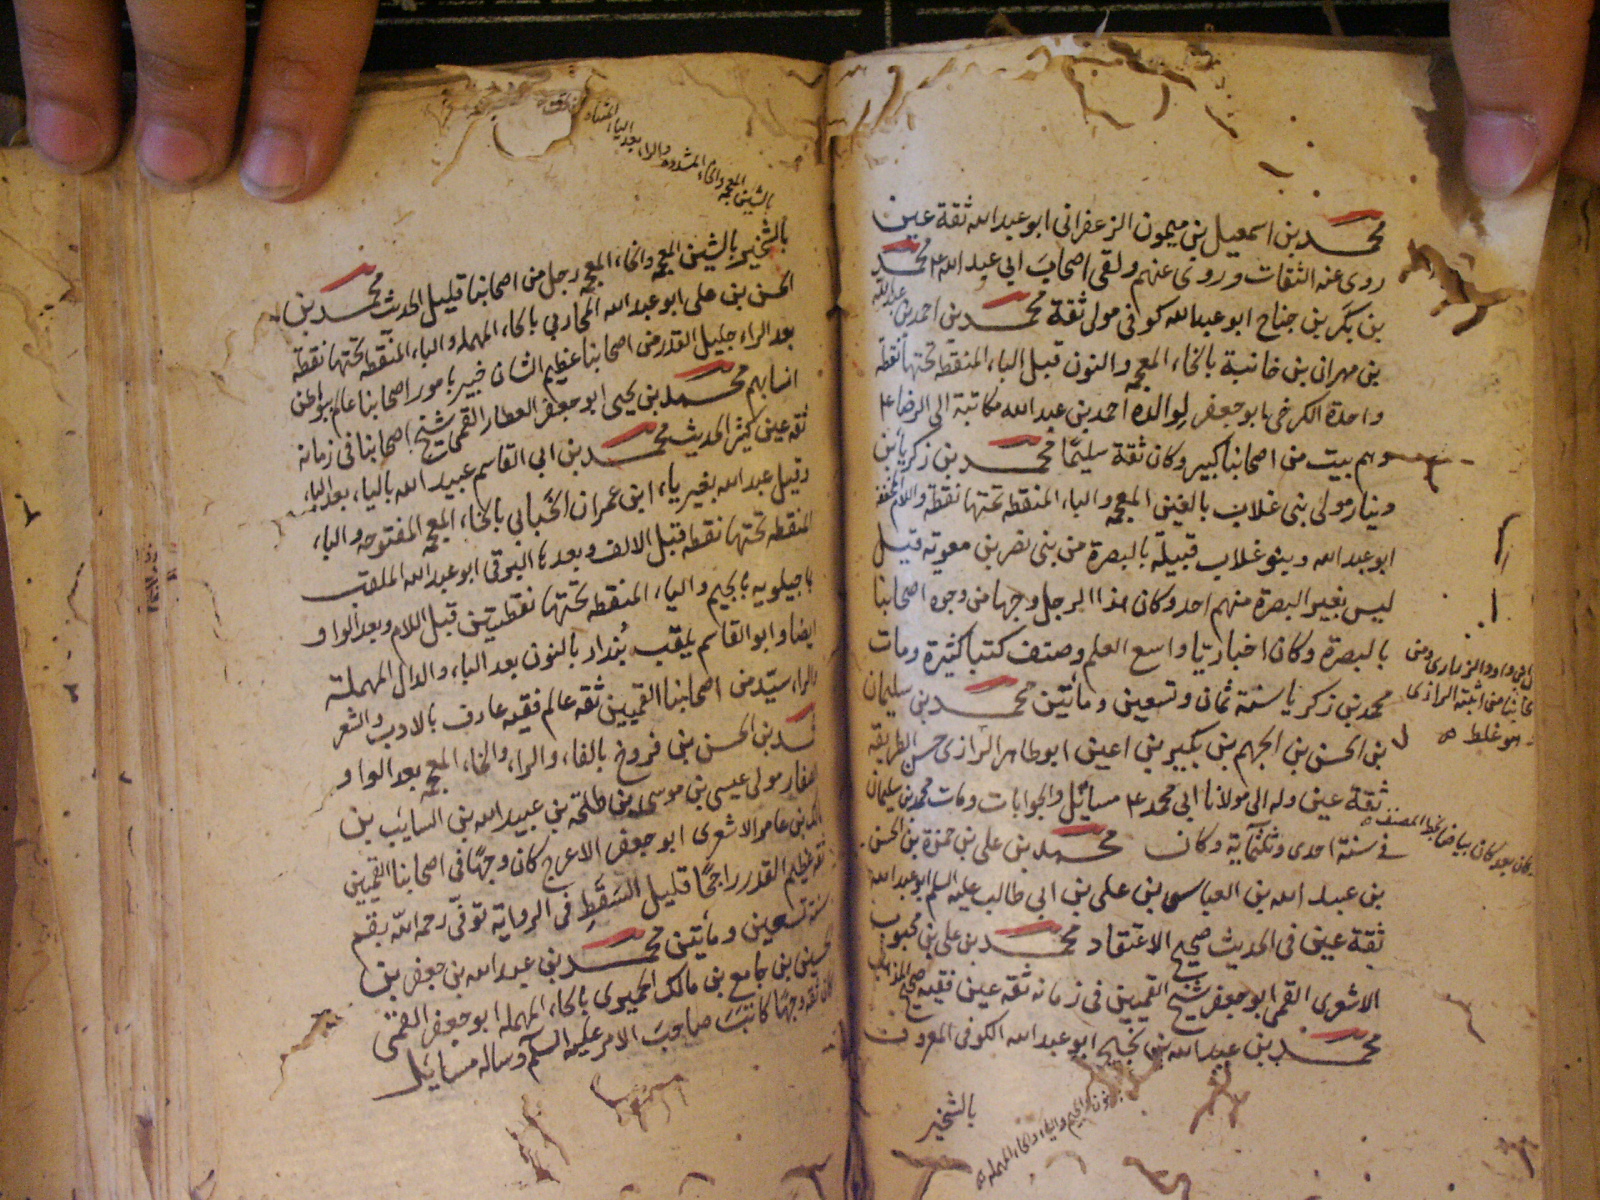 محمد بن اسمعيل بن ميمون الزعفراني ابو عبد الله ثقة عين
روى عنه الثقات وروى عنهم ولقى اصحاب ابي عبد الله ع محمد
بن بكر بن جناح ابو عبد الله كوفى مولى ثقة محمد بن احمد بن عبد الله
بن مهران بن خانبة بالخاء المعجمه والنون قبل الباء المنقطة تحتها نقطة
واحدة الكرخى ابو جعفر لوالده احمد بن عبد الله مكاتبة الى الرضا ع
وهم بيت من اصحابنا كبير وكان ثقة سليما محمد بن زكريا بن
دينار مولى بنى غلاب بالغين المعجمه والباء المنقطة تحتها نقطة واللام المخففة
ابو عبد الله وبنو غلاب قبيلة بالبصرة من بنى نصر بن معوية قيل
ليس بغير البصرة منهم احد وكان هذا الرجل وجها من وجوه اصحابنا
بالبصرة وكان اخباريا واسع العلم وصنف كتبا كثيرة ومات
محمد بن زكريا سنة ثمان وتسعين ومأتين محمد بن سليمان
بن الحسن بن الجهم بن بكير بن اعين ابو طاهر الزرازى حسن الطريقه
ثقة عين وله الى مولانا ابى محمد ع مسائل والجوابات ومات محمد بن سليمان
فى سنة احدى وثلثمائة وكان محمد بن على بن حمزة بن الحسن
بن عبيد الله بن العباس بن على بن ابى طالب عليه السلم ابو عبد الله
ثقة عين فى الحديث صحيح الاعتقاد محمد بن على بن محبوب
الاشعرى القمى ابو جعفر شيخ القميين فى زمانه ثقة عين فقيه صحيح المذهب
محمد بن عبد الله بن نجيح ابو عبد الله الكوفى المعروف
بالشخير
والجيم والياء والحاء المهمله
وهو غلط
كان بعد كان بياضا بخط المصنف
بالشين المعجمه والخاء المشدده والراء بعد الياء
بالشخير بالشين المعجمه والخاء المعجمه رجل من اصحابنا قليل الحديث محمد بن
الحسن بن على ابو عبد الله المحاربي بالحاء المهمله والباء المنقطه تحتها نقطة
بعد الراء جليل القدر من اصحابنا عظيم الشان خبير بامور اصحابنا عالم ببواطن
انسابهم محمد بن يحيى ابو جعفر العطار القمى شيخ اصحابنا فى زمانه
ثقه عين كثير الحديث محمد بن ابي القاسم عبيد الله بالياء بعد الباء
وقيل عبد الله بغير ياء ابن عمران الخبابي بالخاء المعجمه المفتوحه والباء
المنقطه تحتها نقطه قبل الالف وبعدها البرقى ابو عبد الله الملقب
ماجيلويه بالجيم والياء المنقطه تحتها نقطتين قبل اللام وبعد الواو
ايضا وابو القاسم يلقب بندار بالنون بعد الباء والدال المهملة
والراء سيد من اصحابنا القميين ثقه عالم فقيه عارف بالادب والشعر
محمد بن الحسن بن فروخ بالفاء والراء والخاء المعجمه بعد الواو
الصفار مولى عيسى بن موسى بن طلحة بن عبيد الله بن السايب بن
مالك بن عامر الاشعرى ابو جعفر الاعرج كان وجها فى اصحابنا القميين
ثقة عظيم القدر راجحا قليل السقط فى الرواية توفى رحمه الله بقم
سنة تسعين ومأتين محمد بن عبد الله بن جعفر بن
الحسين بن جامع بن مالك الحميرى بالحاء المهمله ابو جعفر القمى
كان ثقة وجها كاتب صاحب الامر عليه السلم وساله مسايل